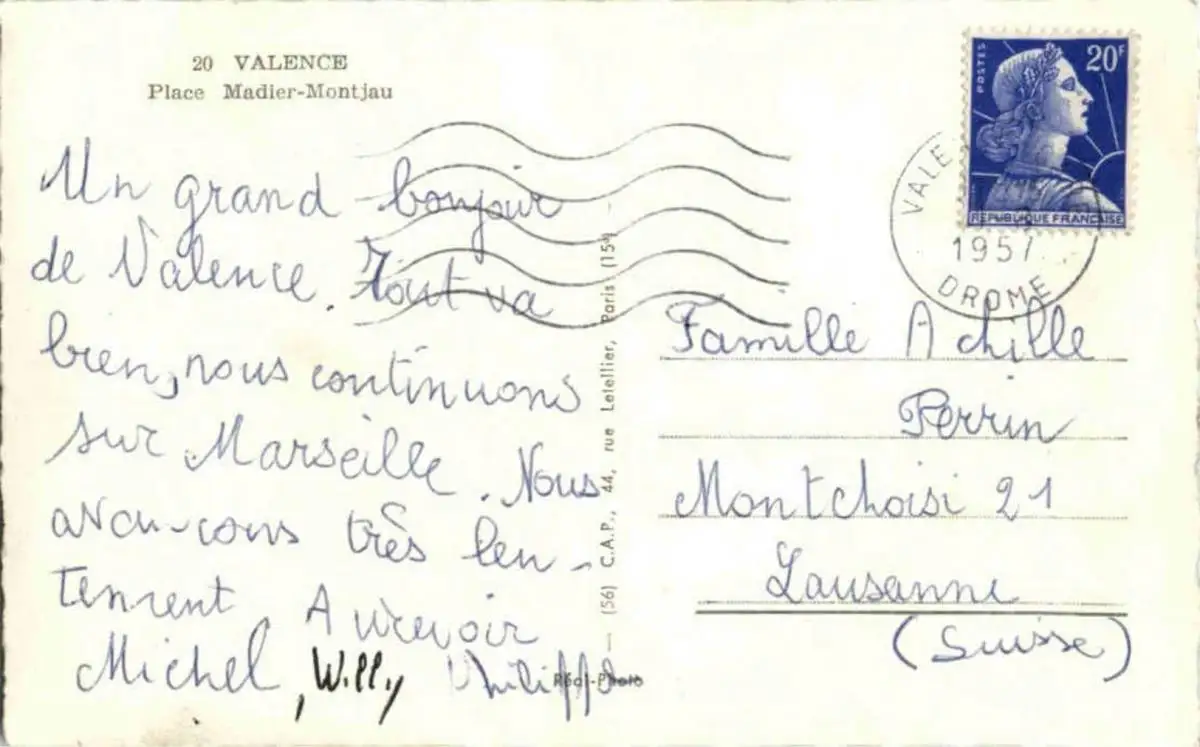 20 VALENCE
Place Madier-Montjau
Un grand bonjour
de Valence. Tout va
bien, nous continuons
sur Marseille. Nous
avan-cons très len-
tement. Aurevoir
Michel, Willy Philippe
(56) C.A.P., 44, rue Letellier, Paris (15e)
Réal-Photo
POSTES
20F
REPUBLIQUE FRANÇAISE
1957
DROME
Famille Achille
Perrin
Montchoisi 21
Lausanne
(Suisse)